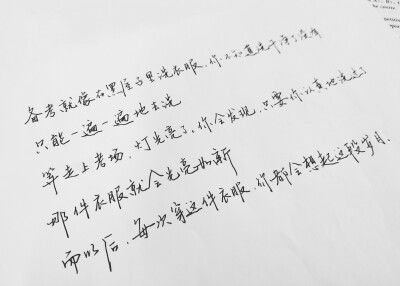 备考就像在黑屋子里洗衣服,你不知道洗干净了没有
只能一遍一遍地去洗
等走上考场,灯光亮了,你会发现,只要你认真地洗过了
那件衣服就会光亮如新
而以后,每次穿这件衣服,你都会想起这段岁月.